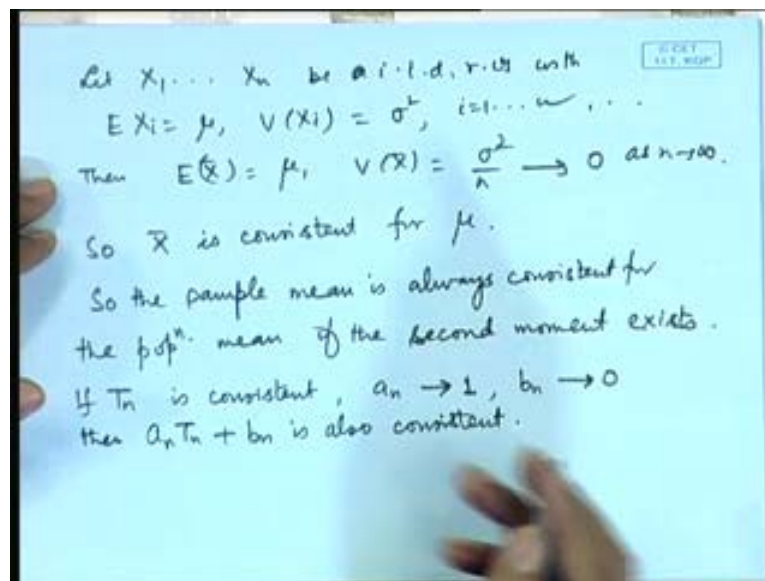 Let X₁ . . . Xₙ be a i.i.d. r.v.s with
E Xᵢ = μ, V(Xᵢ) = σ², i=1 . . . n, . .
Then E(X̄) = μ, V(X̄) = σ²/n → 0 as n→∞.
So X̄ is consistent for μ.
So the sample mean is always consistent for
the popⁿ. mean if the second moment exists.
If Tₙ is consistent, aₙ → 1, bₙ → 0
then aₙTₙ + bₙ is also consistent.